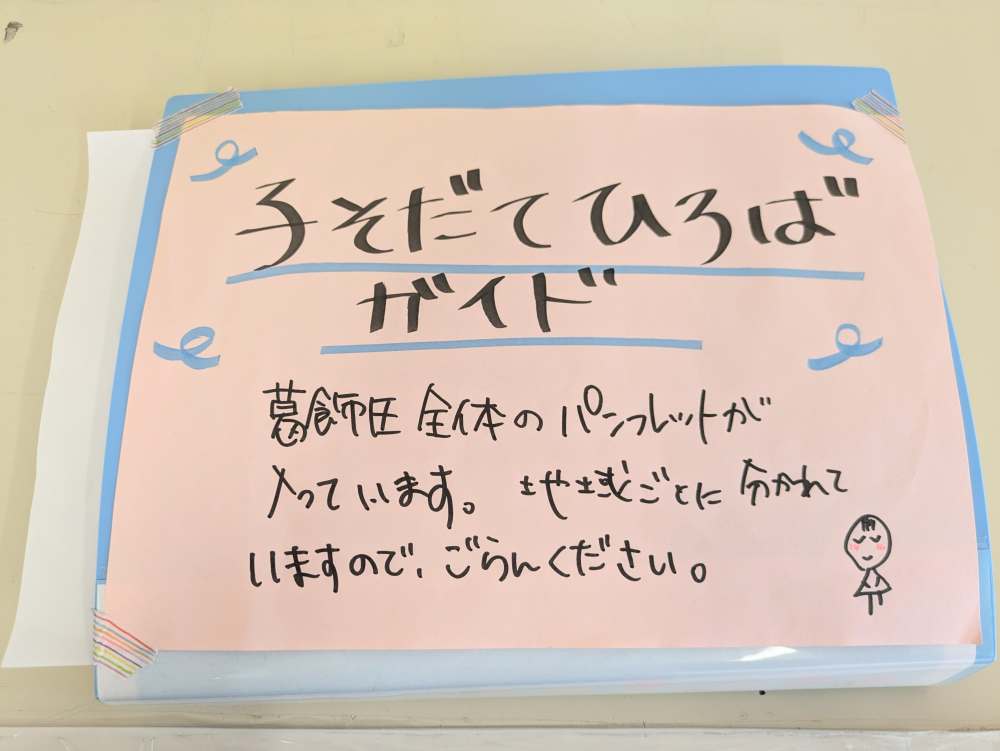 子そだてひろば
ガイド
葛飾区全体のパンフレットが
入っています。地域ごとに分かれて
いますので、ごらんください。